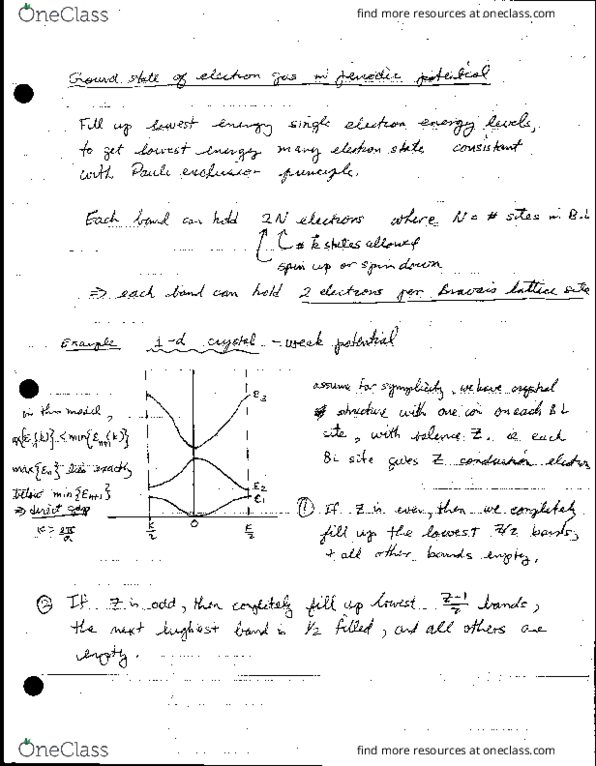 OneClass
find more resources at oneclass.com
Ground state of electron gas in periodic potential
Fill up lowest energy single electron energy levels,
to get lowest energy many electron state consistant
with Pauli exclusion principle.
Each band can hold 2N electrons where N = # sites in B.L
# k states allowed
spin up or spin down
⇒ each band can hold 2 electrons per Bravais lattice site
Example 1-d crystal - weak potential
in this model,
max{En(k)} < min{En+1(k)}
max{En} lies exactly
below min{En+1}
⇒ direct gap
K = 2π/a
ε3
ε2
ε1
-K/2 0 K/2
assume for symplicity, we have crystal
structure with one ion on each BL
site, with valence Z. ie each
BL site gives Z conduction electrons
① If Z is even, then we completely
fill up the lowest Z/2 bands,
+ all other bands empty.
② If Z is odd, then completely fill up lowest Z-1/2 bands,
the next highest band is 1/2 filled, and all others are
empty.
OneClass
find more resources at oneclass.com